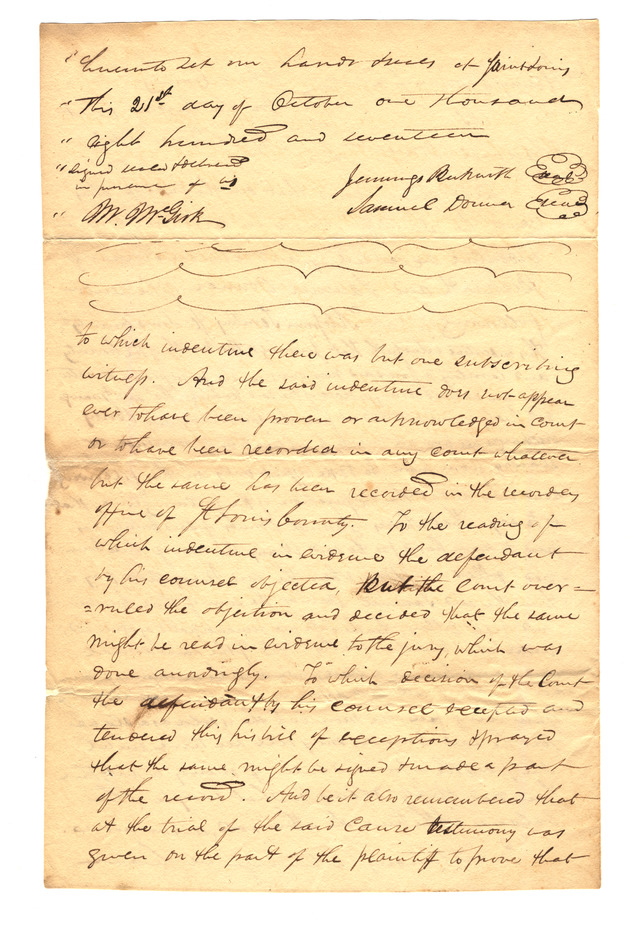 " hereunto set our hands & seals at Saint Louis
" This 21st day of October one thousand
" eight hundred and seventeen
" Signed sealed & delivered
in presence of us
Jennings Beckwith Seal
Samuel Donner Seal
" M. McGirk
to which indenture there was but one subscribing
witness. And the said indenture does not appear
ever to have been proven or acknowledged in court
or to have been recorded in any court whatever
but the same has been recorded in the recorders
office of St Louis County. To the reading of
which indenture in evidence the defendant
by his counsel objected, But the Court over=
=ruled the objection and decided that the same
might be read in evidence to the jury, which was
done accordingly. To which decision of the Court
the defendant by his counsel excepted and
tendered this his bill of exceptions & prayed
that the same might be signed & made a part
of the record. And be it also remembered that
at the trial of the said Cause testimony was
given on the part of the plaintiff to prove that